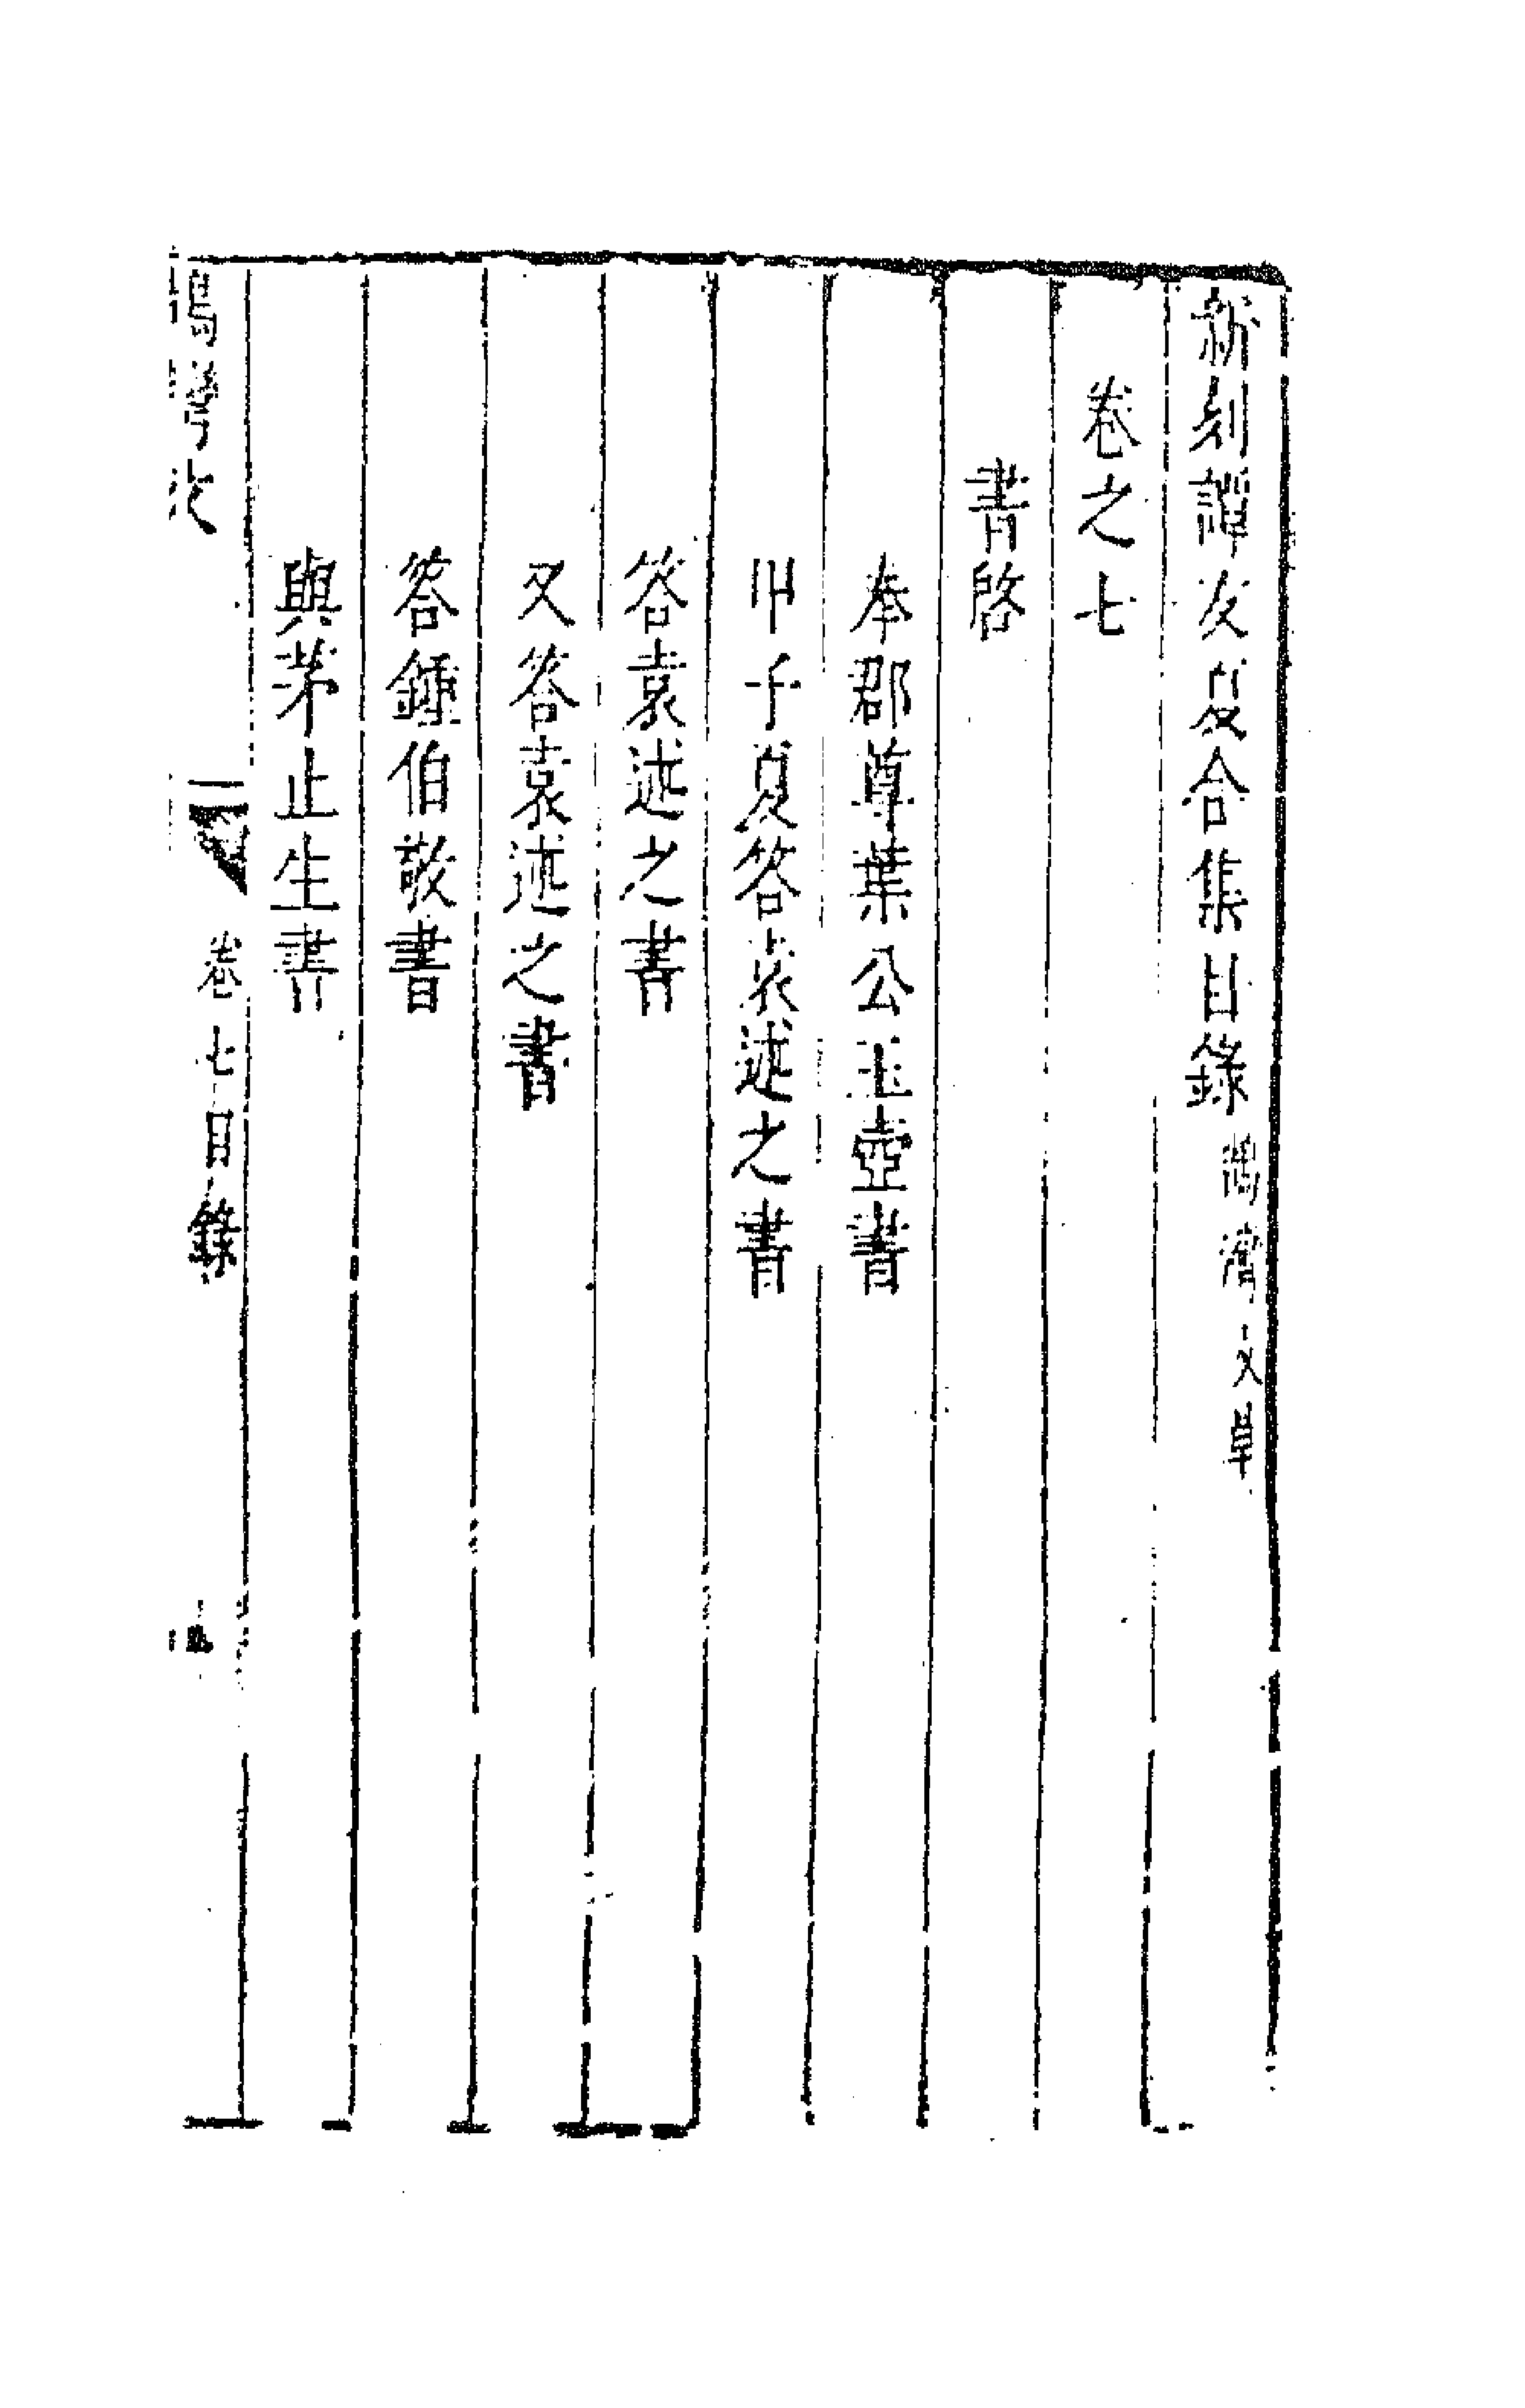 新刻譚友夏合集目錄 鵠灣文草
卷之七
書啓
奉郡尊葉公玉壺書
甲子夏答袁述之書
答袁述之書
又答袁述之書
答鍾伯敬書
與茅止生書
鵠灣文 卷七目錄